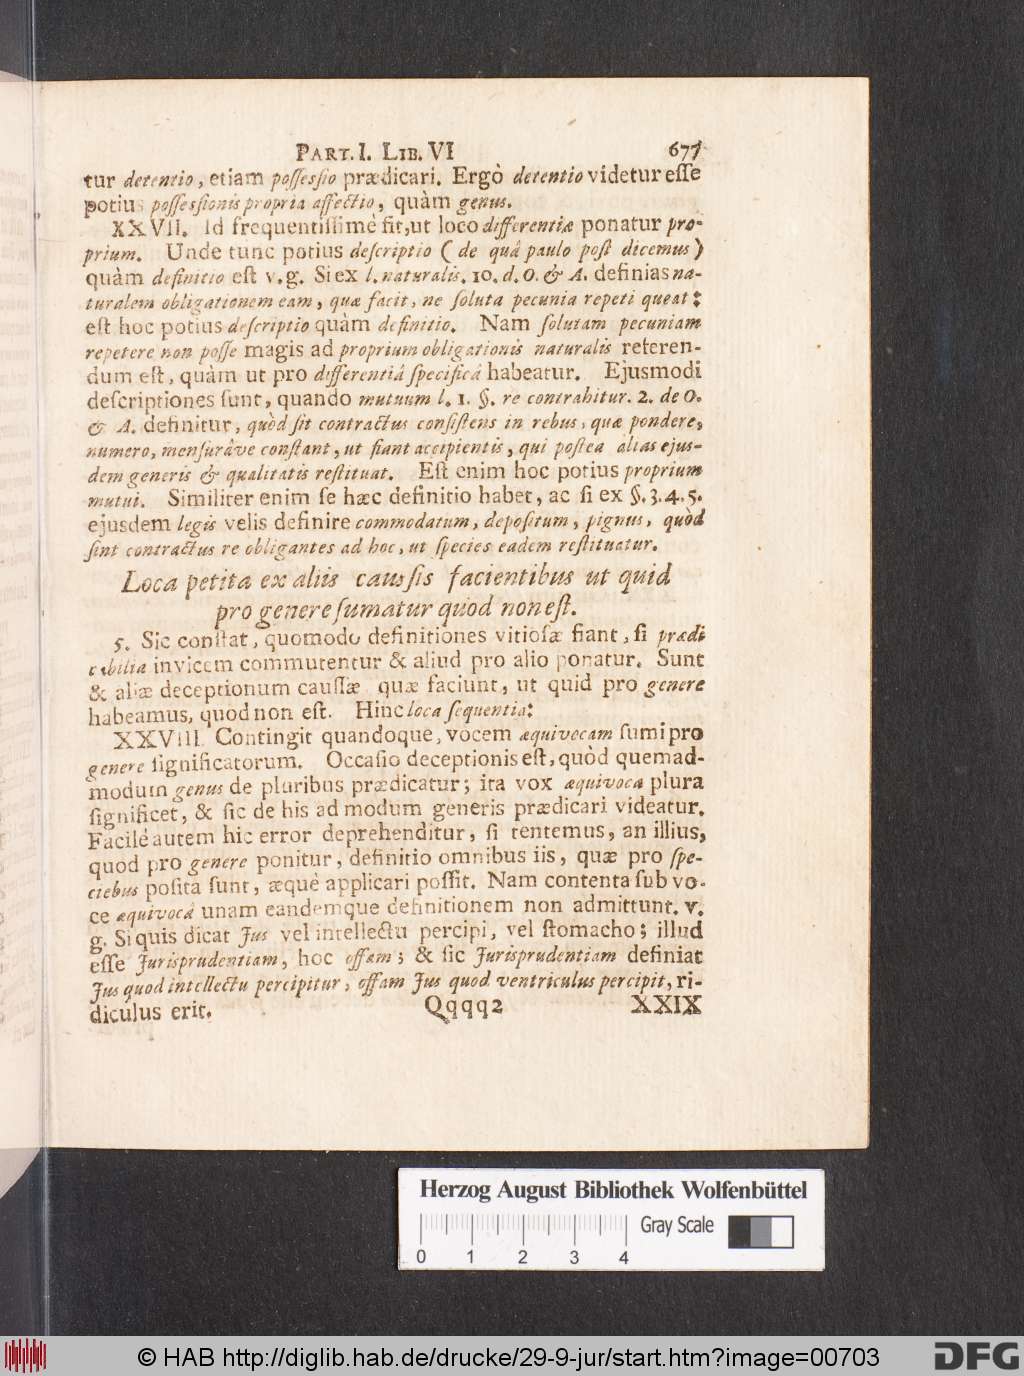 PART. I. LIB. VI 677
tur detentio, etiam possessio prædicari. Ergò detentio videtur esse
potius possessionis propria affectio, quàm genus.
XXVII. Id frequentissimè fit, ut loco differentiæ ponatur pro-
prium. Unde tunc potius descriptio (de quâ paulo post dicemus)
quàm definitio est v. g. Si ex l. naturalis. 10. d. O. & A. definias na-
turalem obligationem eam, quæ facit, ne soluta pecunia repeti queat:
est hoc potius descriptio quàm definitio. Nam solutam pecuniam
repetere non posse magis ad proprium obligationis naturalis referen-
dum est, quàm ut pro differentiâ specificâ habeatur. Ejusmodi
descriptiones sunt, quando mutuum l. 1. §. re contrahitur. 2. de O.
& A. definitur, quòd sit contractus consistens in rebus, quæ pondere,
numero, mensurâve constant, ut fiant accipientis, qui postea alias ejus-
dem generis & qualitatis restituat. Est enim hoc potius proprium
mutui. Similiter enim se hæc definitio habet, ac si ex §. 3. 4. 5.
ejusdem legis velis definire commodatum, depositum, pignus, quòd
sint contractus re obligantes ad hoc, ut species eadem restituatur.
Loca petita ex aliis caussis facientibus ut quid
pro genere sumatur quod non est.
5. Sic constat, quomodo definitiones vitiosæ fiant, si prædi
cabilia invicem commutentur & aliud pro alio ponatur. Sunt
& aliæ deceptionum caussæ quæ faciunt, ut quid pro genere
habeamus, quod non est. Hinc loca sequentia:
XXVIII Contingit quandoque, vocem æquivocam sumi pro
genere significatorum. Occasio deceptionis est, quòd quemad-
modum genus de pluribus prædicatur; ita vox æquivoca plura
significet, & sic de his ad modum generis prædicari videatur.
Facilè autem hic error deprehenditur, si tentemus, an illius,
quod pro genere ponitur, definitio omnibus iis, quæ pro spe-
ciebus posita sunt, æquè applicari possit. Nam contenta sub vo-
ce æquivocâ unam eandemque definitionem non admittunt. v.
g. Si quis dicat Jus vel intellectu percipi, vel stomacho; illud
esse Jurisprudentiam, hoc offam; & sic Jurisprudentiam definiat
Jus quod intellectu percipitur, offam Jus quod ventriculus percipit, ri-
diculus erit. Qqqq2 XXIX
Herzog August Bibliothek Wolfenbüttel
Gray Scale
0 1 2 3 4
© HAB http://diglib.hab.de/drucke/29-9-jur/start.htm?image=00703
DFG